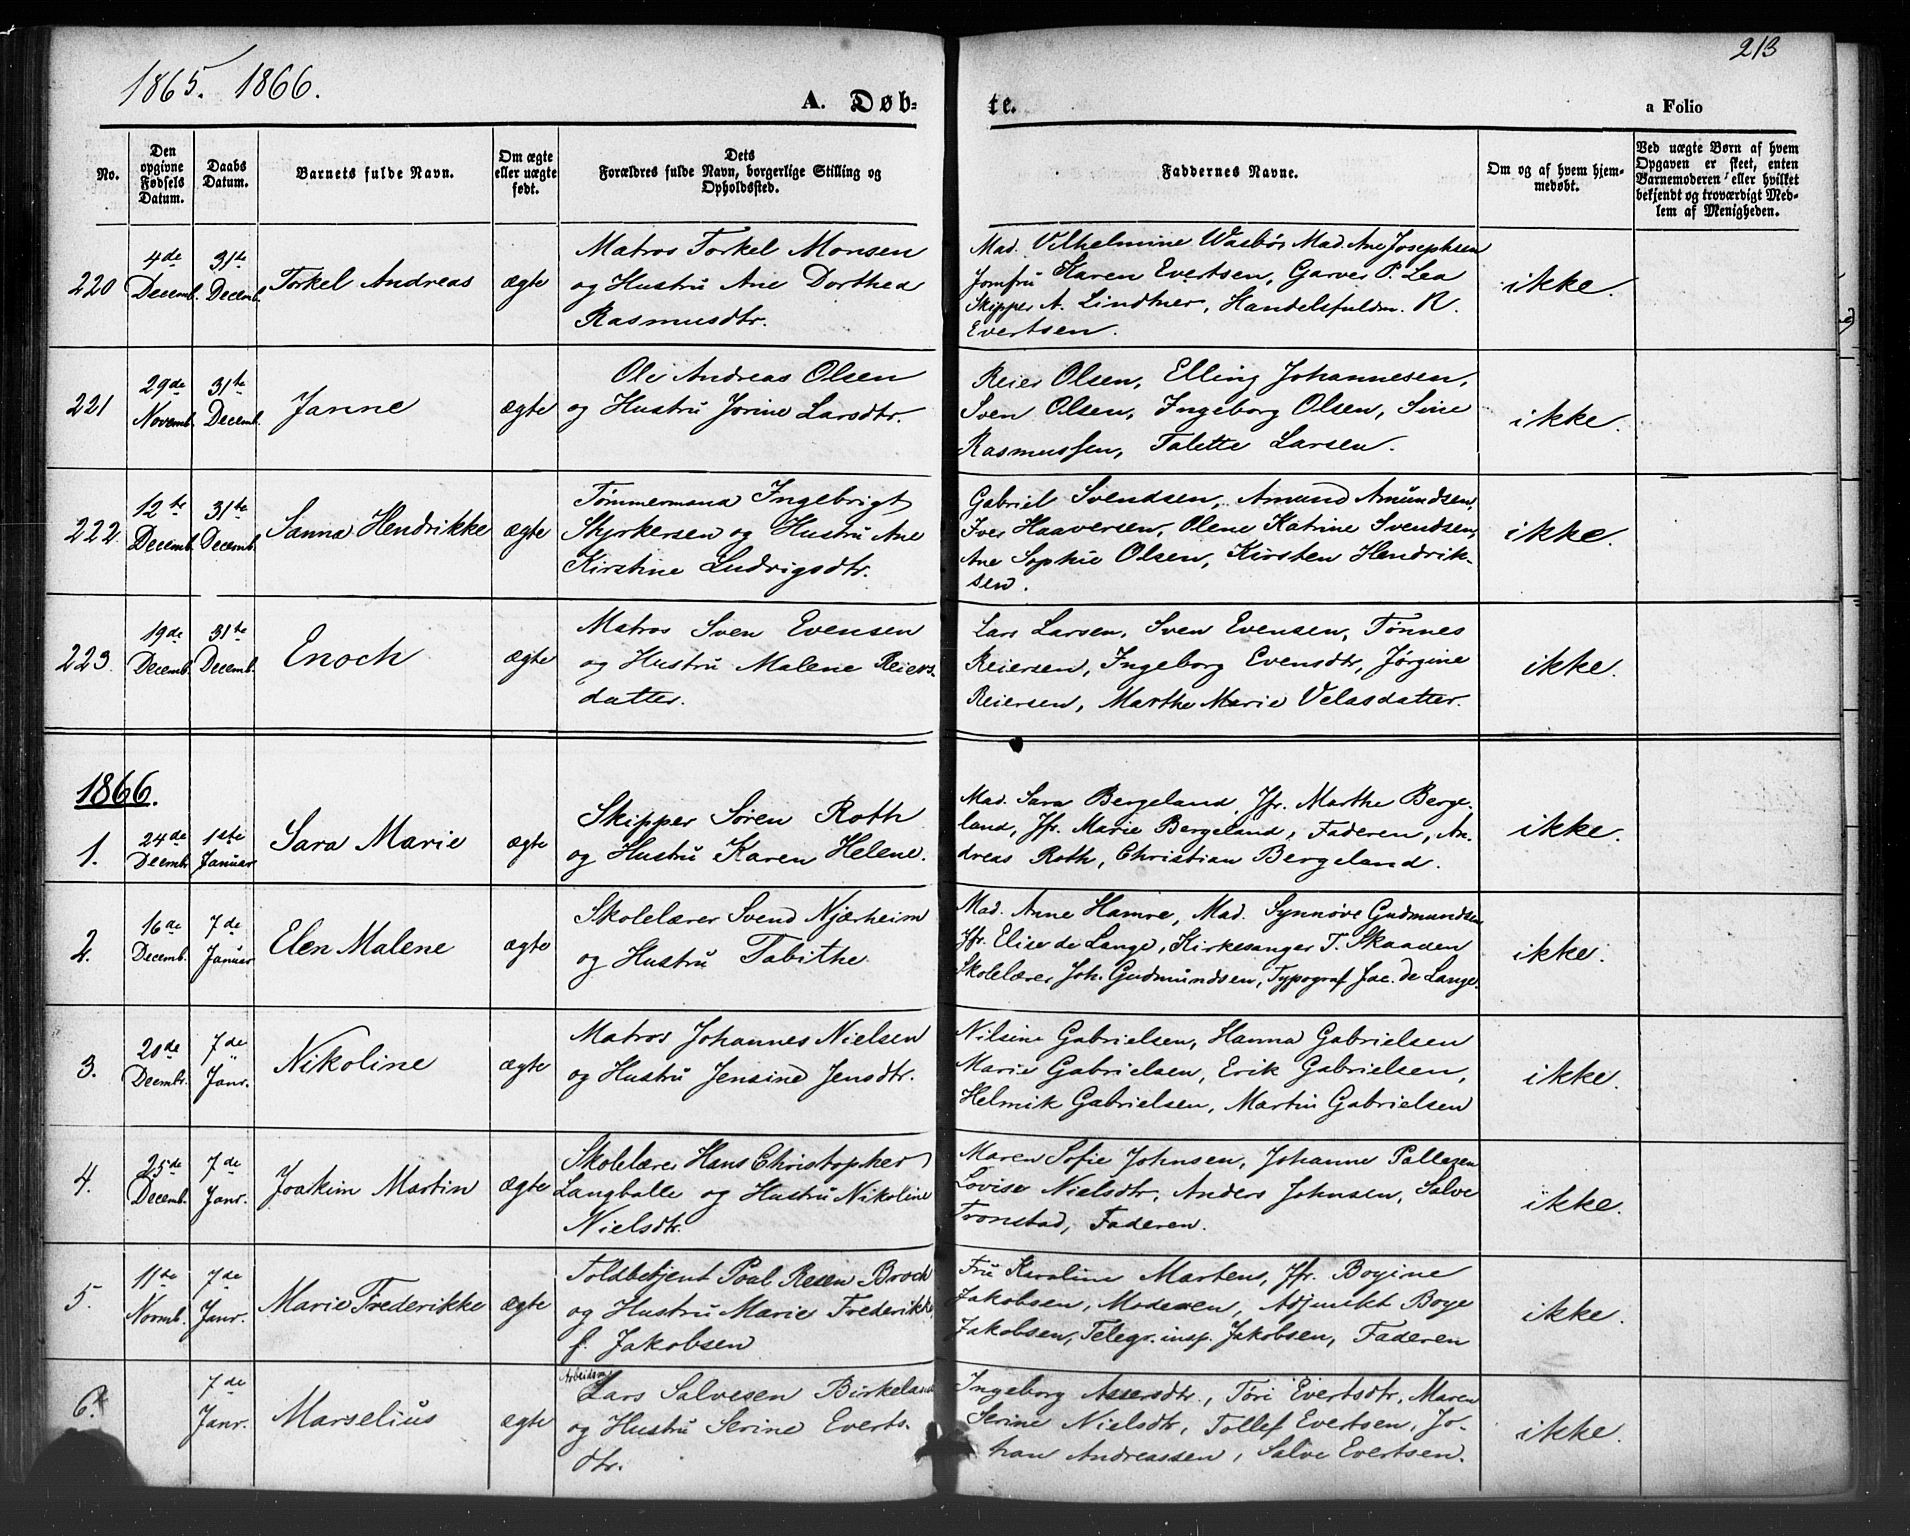 1865. 1866.
213
A. Døb-
te.
a Folio
No.
Den opgivne Fødsels Datum.
Daabs Datum.
Barnets fulde Navn.
Om ægte eller uægte født.
Dets Forældres fulde Navn, borgerlige Stilling og Opholdssted.
Faddernes Navne.
Om og af hvem hjemmedøbt.
Ved uægte Børn af hvem Opgaven er skeet, enten Barnemoderen eller hvilket bekjendt og troværdigt Medlem af Menigheden.
220
4de Decemb.
31te Decemb.
Torkel Andreas
ægte
Matros Torkel Monsen
og Hustru Ane Dorthea
Rasmusdtr.
Mad. Vilhelmine Wasbøs Mad. Ane Josephsen
Jomfru Karen Evertsen, Garver P. Lea
Skipper A. Lindtner, Handelsfuldm. R.
Evertsen.
ikke.
221
29de Novemb.
31te Decemb.
Janne
ægte
Ole Andreas Olsen
og Hustru Jorine Larsdtr.
Reier Olsen, Elling Johannesen,
Sven Olsen, Ingeborg Olsen, Sine
Rasmussen, Talette Larsen.
ikke.
222
12te Decemb.
31te Decemb.
Sanna Hendrikke
ægte
Tømmermand Ingebrigt
Styrkersen og Hustru Ane
Kirstine Ludvigsdtr.
Gabriel Svendsen, Amund Amundsen,
Iver Haaversen, Olene Katrine Svendsen,
Ane Sophie Olsen, Kirsten Hendrik-
sen.
ikke.
223.
19de Decemb.
31te Decemb.
Enoch
ægte
Matros Sven Evensen
og Hustru Malene Reiers-
datter.
Lars Larsen, Sven Evensen, Tønnes
Reiersen, Ingeborg Evensdtr, Jørgine
Reiersen, Marthe Marie Velasdatter.
ikke.
1866.
1.
24de Decemb.
1ste Januar
Sara Marie
ægte
Skipper Søren Roth
og Hustru Karen Helene.
Mad. Sara Bergeland, Jfr. Marthe Berge-
land, Jfr. Marie Bergeland, Faderen, An-
dreas Roth, Christian Bergeland.
ikke.
2.
16de Decemb.
7de Januar
Elen Malene
ægte
Skolelærer Svend Njærheim
og Hustru Tabithe
Mad. Anne Hamre, Mad. Synnøve Gudmundsen
Jfr. Elise de Lange, Kirkesanger T. Skaaden
Skolelærer Joh. Gudmundsen, Typograf Jac. de Lange.
ikke.
3.
20de Decembr.
7de Janr.
Nikoline
ægte
Matros Johannes Nielsen
og Hustru Jensine Jensdtr.
Nilsine Gabrielsen, Hanna Gabrielsen
Marie Gabrielsen, Erik Gabrielsen,
Helmik Gabrielsen, Martin Gabrielsen
ikke.
4.
25de Decemb.
7de Janr.
Joakim Martin
ægte
Skolelærer Hans Christopher
Langballe og Hustru Nikoline
Nielsdtr.
Maren Sofie Johnsen, Johanne Pallesen
Lovise Nielsdtr, Anders Johnsen, Salve
Tronstad, Faderen.
ikke.
5.
11de Novmb.
7de Janr.
Marie Frederikke
ægte
Toldbetjent Poal Resen Broch
og Hustru Marie Frederikke,
f. Jakobsen
Fru Karoline Martens, Jfr. Bogine
Jakobsen, Moderen, Adjunkt Boye
Jakobsen, Telegr. insp. Jakobsen, Faderen
ikke.
6.
7de Janr.
Marselius
ægte
Arbeidsm.
Lars Salvesen Birkeland
og Hustru Serine Everts-
dtr.
Ingeborg Assersdtr., Tøri Evertsdtr, Maren
Serine Nielsdtr, Tollef Evertsen, Jo-
han Andreassen, Salve Evertsen.
ikke.